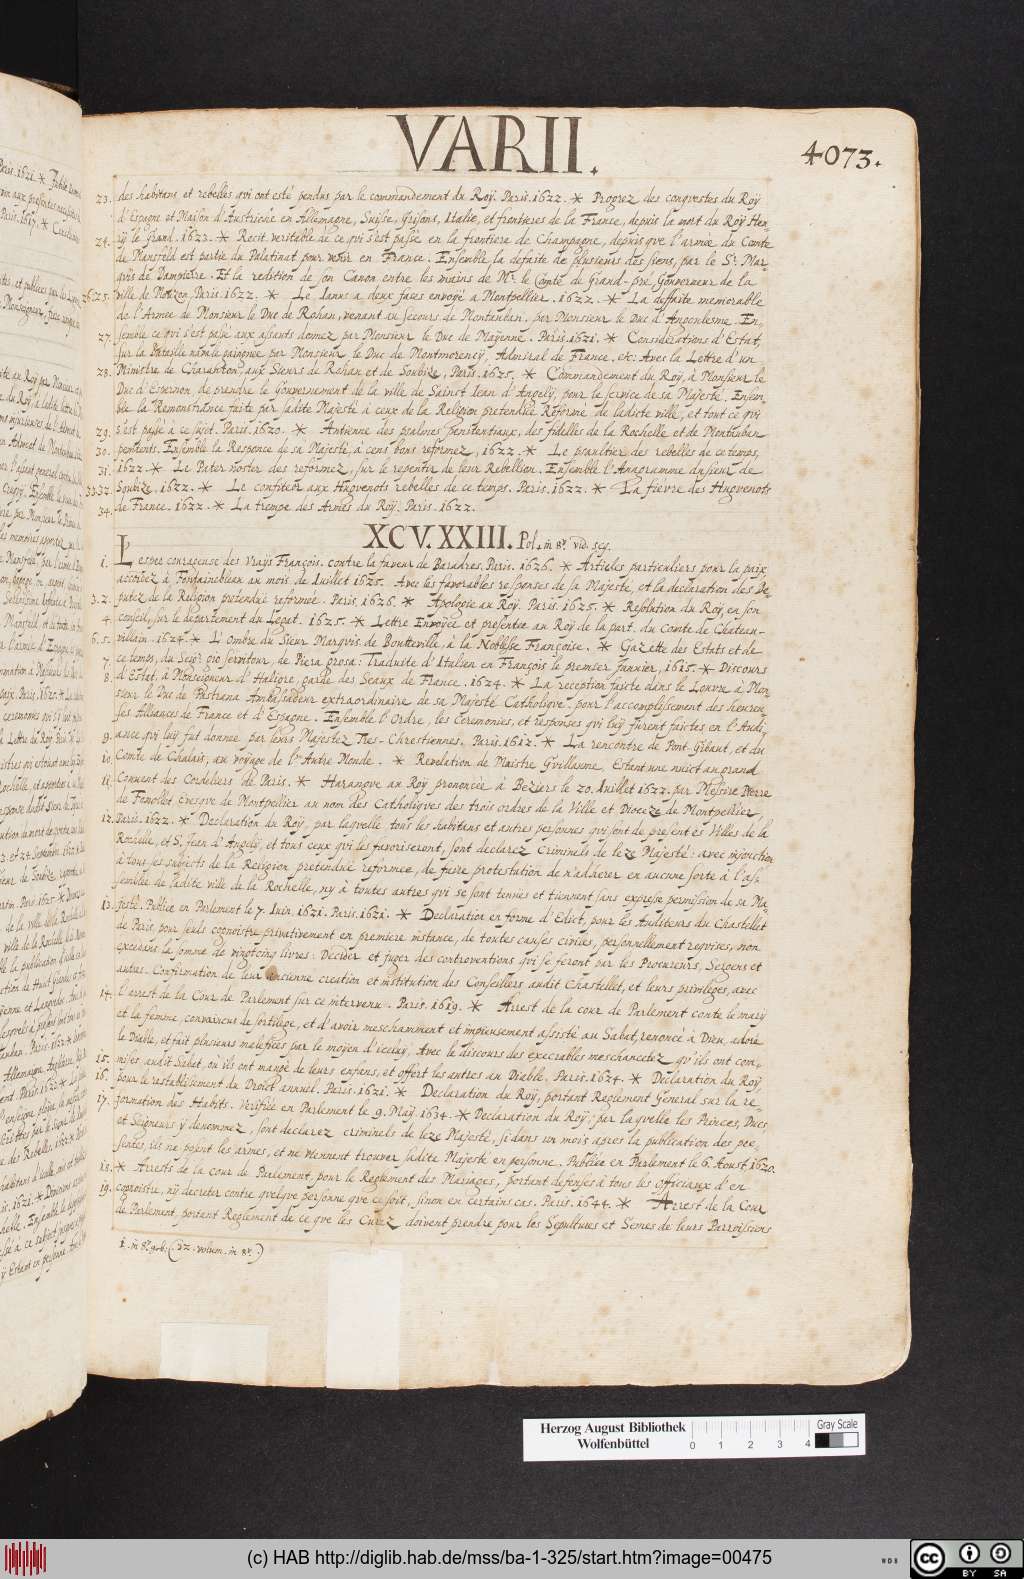 VARII.
4073.
23. des habitans et rebelles qui ont esté pendus par le commandement du Roy. Paris. 1622. * Progrez des conquestes du Roy
d'Espagne et Maison d'Austriche en Allemagne, Suisse, Grisons, Italie, et frontieres de la France, depuis la mort du Roy Hen-
24. ry le Grand. 1623. * Recit veritable de ce qui s'est passé en la frontiere de Champagne, depuis que l'armée du Comte
de Mansfeld est partie du Palatinat pour venir en France. Ensemble la defaite de plusieurs des siens, par le Sr. Mar-
quis de Dampierre. Et la redition de son Canon entre les mains de Mr. le Comte de Grand-pré, Gouverneur de la
26.25. ville de Mouzon, Paris. 1622. * Le Ianus a deux faces envoyé a Montpellier. 1622. * La deffaite memorable
de l'Armee de Monsieur le Duc de Rohan, venant au secours de Montauban. par Monsieur le Duc d'Angoulesme. En-
27. semble ce qui s'est passé aux assauts donnez par Monsieur le Duc de Mayenne. Paris. 1621. * Considerations d'Estat,
sur la Bataille navale gaingnee par Monsieur le Duc de Montmorency, Admiral de France. etc. Avec la Lettre d'un
28. Ministre de Charanton, aux Sieurs de Rohan et de Soubize, Paris. 1625. * Commandement du Roy, à Monsieur le
Duc d'Espernon, de prendre le Gouvernement de la ville de Sainct Iean d'Angely, pour le service de sa Majesté. Ensem-
ble la Remonstrance faite par sadite Majesté à ceux de la Religion pretendüe Reformé de ladicte ville, et tout ce qui
29. s'est passé à ce sujet. Paris. 1620. * Antienne des psalmes penitentiaux, des fidelles de la Rochelle et de Montauban
30. penitents. Ensemble la Responce de sa Majesté, a cens bons reformez, 1622. * Le psaultier des rebelles de ce temps,
31. 1622. * Le Pater noster des reformez, sur le repentir de leur Rebellion. Ensemble l'Annagramme du sieur de
33.32. Soubize. 1622. * Le confiteor aux Huguenots rebelles de ce temps. Paris. 1622. * La fievre des Huguenots
34. de France. 1622. * La trempe des Armes du Roy. Paris. 1622.
XCV.XXIII. Pol. in 8º. vid. seq.
1. L'espee courageuse des vrays François. contre la faveur de Baradres, Paris. 1626. * Articles particuliers pour la paix
accordez à Fontainebleau au mois de Iuillet 1625. Avec les favorables responses de sa Majesté, et la declaration des De-
3.2. putez de la Religion pretendue reformée. Paris. 1626. * Apologie au Roy. Paris. 1625. * Resolution du Roy, en son
4. conseil, sur le departement du Legat. 1625. * Lettre Envoyee et presentee au Roy de la part du Comte de Chateau-
6.5. villain. 1624. * L'Ombre du Sieur Marquis de Boutteville, à la Noblesse Françoise. * Gazette des Estats et de
7. ce temps, du Seigr. gio servitour, de Piera grosa: Traduite d'Italien en François le premier Iannier, 1615. * Discours
8. d'Estat, à Monseigneur d'Haligre, garde des Seaux de France. 1624. * La reception faicte dans le Louvre à Mon-
sieur le Duc de Pastrana Ambassadeur extraordinaire de sa Majesté Catholique. pour l'accomplissement des heureu-
ses Alliances de France et d'Espagne. Ensemble l'Ordre, les Ceremonies, et responses qui luy furent faictes en l'Audi-
9. ance qui luy fut donnee par leurs Majestez Tres-Chrestiennes. Paris. 1612. * La rencontre de Pont-Gibaut, et du
10. Comte de Chalais, au voyage de l'Autre Monde. * Revelation de Maistre Guillaume, Estant une nuict au grand
11. Convent des Cordeliers de Paris. * Harangue au Roy prononcée à Beziers le 20. Iuillet 1622. par Messire Pierre
de Fenollet Evesque de Montpellier au nom des Catholiques des trois ordres de la Ville et Dioceze de Montpellier,
12. Paris. 1622. * Declaration du Roy, par laquelle tous les habitans et autres personnes qui sont de present es Villes de la
Rochelle, et S. Jean d'Angely, et tous ceux qui les favoriseront, sont declarez Criminels de leze Majesté: avec injonction
à tous les subjects de la Religion pretendüe reformee, de faire protestation de n'adherer en aucune sorte à l'as-
semblee de ladite ville de la Rochelle, ny à toutes autres qui se sont tenues et tiennent sans expresse permission de sa Ma-
13. jesté. Publiée en Parlement le 7. Iuin. 1621. Paris. 1621. * Declaration en forme d'Edict, pour les Auditeurs du Chastellet
de Paris, pour seuls cognoistre privativement en premiere instance, de toutes causes civiles, personnellement requises, non
excedans la somme de vingtcinq livres: Decider et juger des controventions qui se feront par les Procureurs, Sergens et
autres. Confirmation de leur ancienne creation et institution des Conseillers audit Chastellet, et leurs privileges, avec
14. l'arrest de la Cour de Parlement sur ce intervenu. Paris. 1619. * Arrest de la cour de Parlement conte le mary
et la femme, convaincus de sortilege, et d'avoir meschamment et impieusement assisté au Sabat, renoncé à Dieu, adoré
le Diable, et fait plusieurs malefices par le moyen d'iceluy, Avec le discours des execrables meschancetez qu'ils ont com-
15. mises audit Sabat, où ils ont mangé de leurs enfans, et offert les autres au Diable. Paris. 1624. * Declaration du Roy
16. pour le restablissement du Droict annuel. Paris. 1621. * Declaration du Roy, portant Reglement General sur la re-
17. formation des Habits. Verifiée en Parlement le 9. May 1634. * Declaration du Roy; par laquelle les Princes, Ducs,
et Seigneurs y denommez, sont declarez criminels de leze Majesté, si dans un mois apres la publication des pre-
sentes, ils ne posent les armes, et ne viennent trouver sadite Majesté en personne. Publiée en Parlement le 6. Aoust 1620.
18. * Arrests de la cour de Parlement, pour le Reglement des Mariages, portant defenses à tous les officiaux d'en
19. cognoistre, ny decreter contre quelque personne que ce soit, sinon en certains cas. Paris. 1644. * Arrest de la Cour
de Parlement portant Reglement de ce que les Curez doivent prendre pour les Sepultures et Semes de leurs Parroissiens
Herzog August Bibliothek
Wolfenbüttel
Gray Scale
0 1 2 3 4
(c) HAB http://diglib.hab.de/mss/ba-1-325/start.htm?image=00475
WDB
cc BY SA